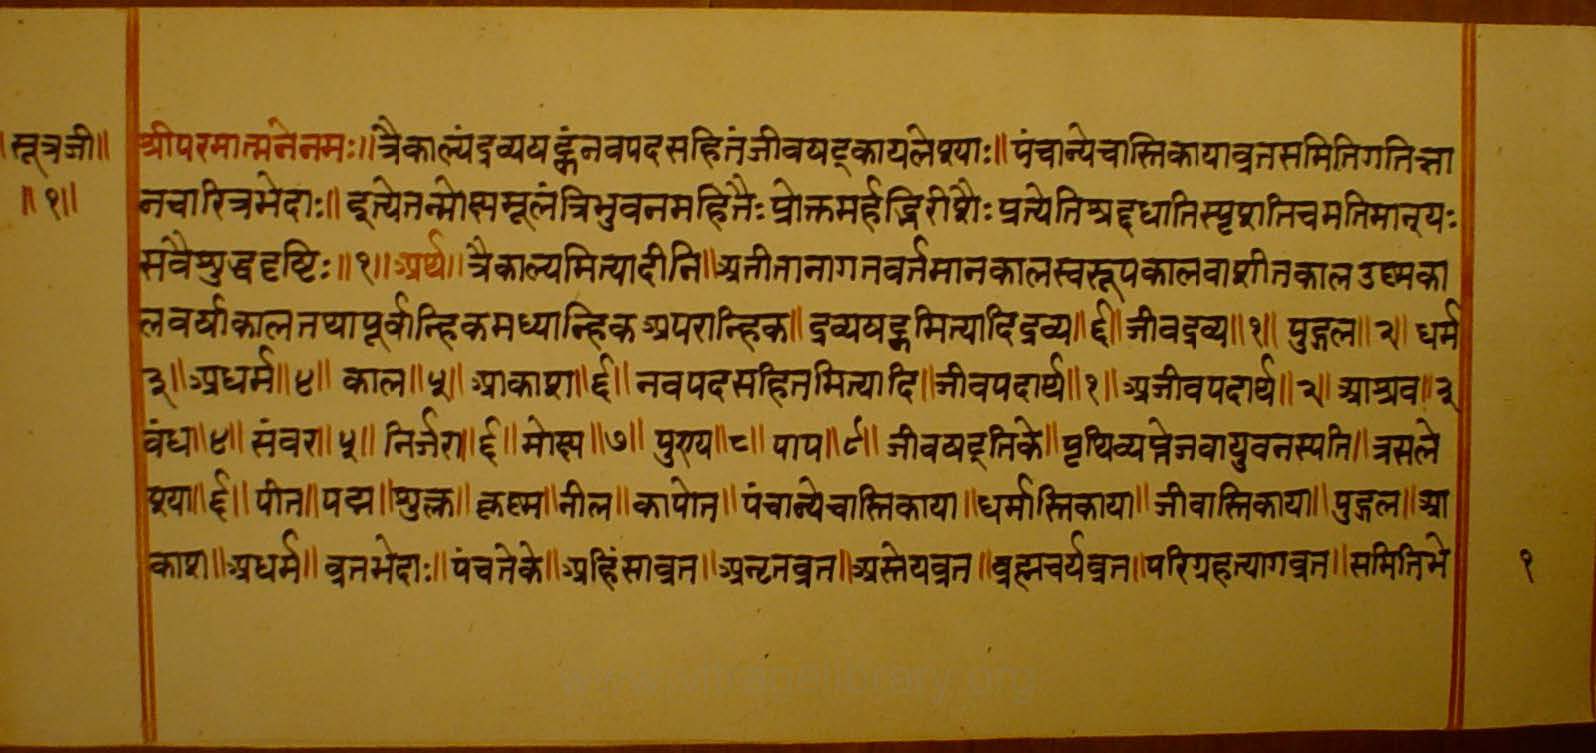 ॥सूत्रजी॥
॥१॥
श्रीपरमात्मनेनमः॥त्रैकाल्यंद्रव्यषट्कंनवपदसहितंजीवषट्कायलेश्याः॥पंचान्येचास्तिकायाव्रतसमितिगतिज्ञा
नचारित्रभेदाः॥इत्येतन्मोक्षमूलंत्रिभुवनमहितैःप्रोक्तमर्हद्भिरीशैःप्रत्येतिश्रद्दधातिस्पृशतिचमतिमान्यः
सवैशुद्धदृष्टिः॥१॥अर्थ॥त्रैकाल्यमित्यादीनि॥अतीतानागतवर्तमानकालस्वरूपकालवाशीतकालउष्मका
लवर्षाकालतथापूर्वान्हिकमध्यान्हिकअपरान्हिक॥द्रव्यषट्कमित्यादिद्रव्य॥६॥जीवद्रव्य॥१॥पुद्गल॥२॥धर्म
३॥अधर्म॥४॥काल॥५॥आकाश॥६॥नवपदसहितमित्यादि॥जीवपदार्थ॥१॥अजीवपदार्थ॥२॥आश्रव॥३
बंध॥४॥संवर॥५॥निर्जरा॥६॥मोक्ष॥७॥पुण्य॥८॥पाप॥९॥जीवषट्तिके॥पृथिव्यप्तेजवायुवनस्पति॥त्रसले
श्या॥६॥पीत॥पद्म॥शुक्ल॥कृष्म॥नील॥कापोत॥पंचान्येचास्तिकाया॥धर्मास्तिकाया॥जीवास्तिकाया॥पुद्गल॥आ
काश॥अधर्म॥व्रतभेदाः॥पंचतेके॥अहिंसाव्रत॥अनृतव्रत॥अस्तेयव्रत॥ब्रह्मचर्यव्रत॥परिग्रहत्यागव्रत॥समितिभे
१